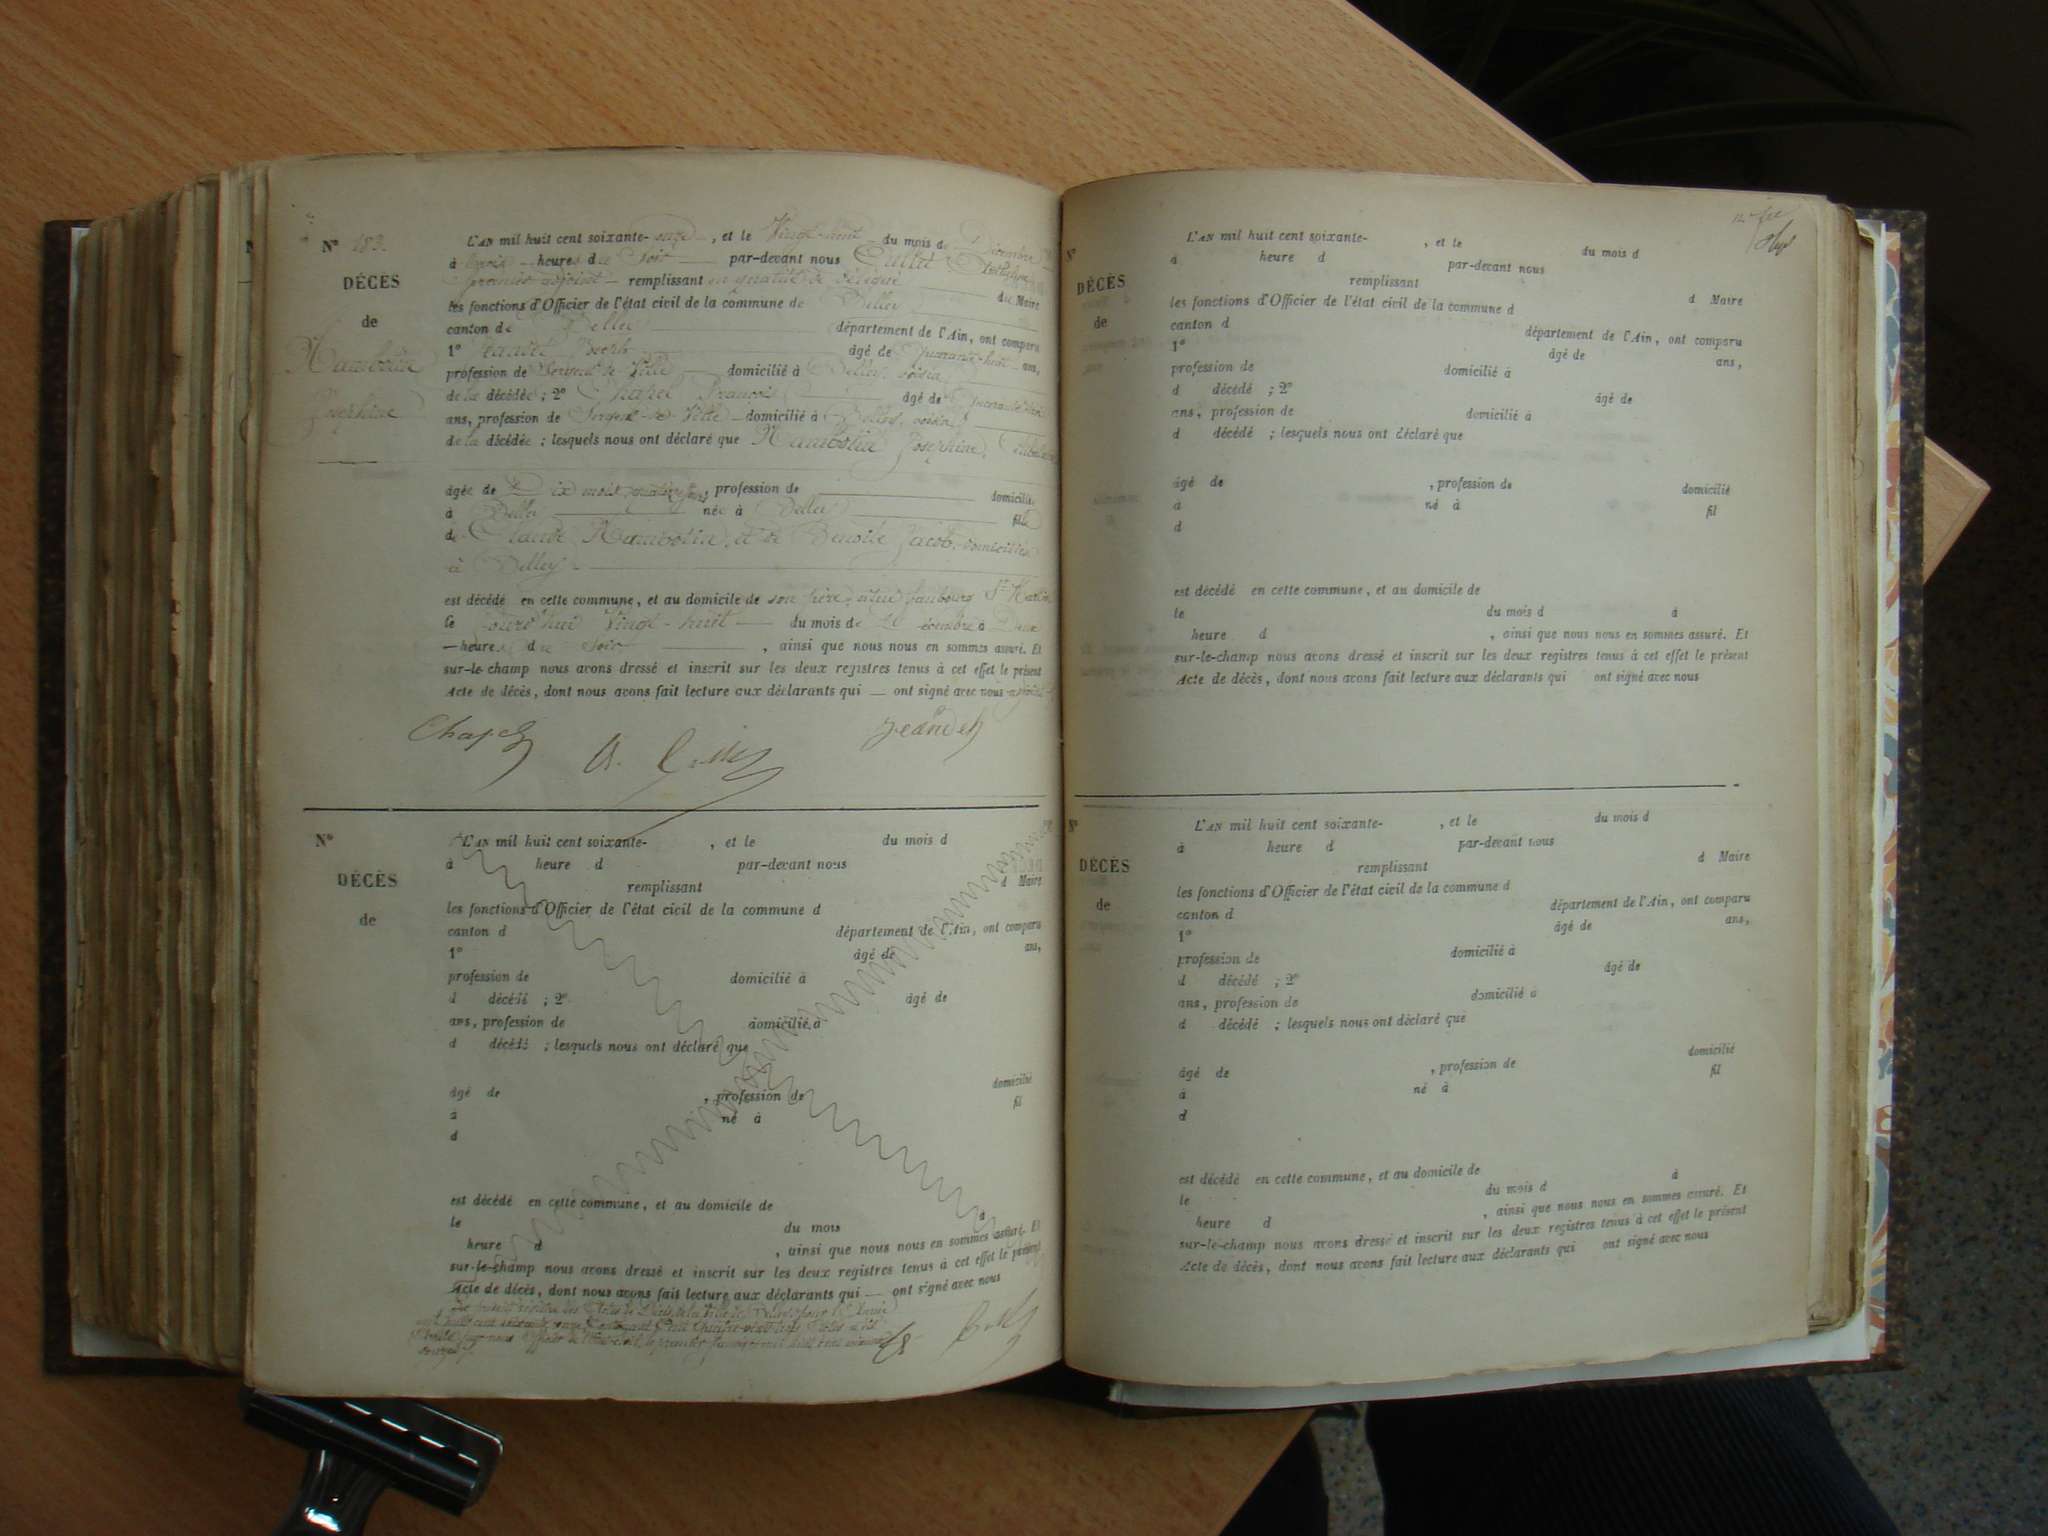 N° 183.
DÉCÈS
de
Rambolin
Joséphine
L'AN mil huit cent soixante-onze, et le Vingt-huit du mois de Décembre
à trois heures du soir par-devant nous
premier adjoint remplissant en qualité de délégué du Maire
les fonctions d'Officier de l'état civil de la commune de Belley
canton de Belley département de l'Ain, ont comparu
1° Jeandet Joseph âgé de Quarante-huit ans,
profession de Sergent de Ville domicilié à Belley, voisin
de la décédée ; 2° Chapel François âgé de Quarante
ans, profession de Sergent de Ville domicilié à Belley, voisin
de la décédée ; lesquels nous ont déclaré que Rambolin Joséphine,
âgée de Dix mois, profession de domicilié
à Belley née à Belley fille
de Claude Rambolin, et de Benoite Jacob, domiciliés
à Belley
est décédé en cette commune, et au domicile de son père, situé faubourg St Martin
le jourd'hui Vingt-huit du mois de Décembre à Deux
heures du soir, ainsi que nous nous en sommes assuré. Et
sur-le-champ nous avons dressé et inscrit sur les deux registres tenus à cet effet le présent
Acte de décès, dont nous avons fait lecture aux déclarants qui ont signé avec nous
Chapel Jeandet
N°
DÉCÈS
de
L'AN mil huit cent soixante- , et le du mois d
à heure d par-devant nous
remplissant d Maire
les fonctions d'Officier de l'état civil de la commune d
canton d département de l'Ain, ont comparu
1° âgé de ans,
profession de domicilié à
d décédé ; 2° âgé de
ans, profession de domicilié à
d décédé ; lesquels nous ont déclaré que
âgé de , profession de domicilié
à né à fil
d
est décédé en cette commune, et au domicile de
le du mois d à
heure d , ainsi que nous nous en sommes assuré. Et
sur-le-champ nous avons dressé et inscrit sur les deux registres tenus à cet effet le présent
Acte de décès, dont nous avons fait lecture aux déclarants qui ont signé avec nous
N°
DÉCÈS
de
L'AN mil huit cent soixante- , et le du mois d
à heure d par-devant nous
remplissant d Maire
les fonctions d'Officier de l'état civil de la commune d
canton d département de l'Ain, ont comparu
1° âgé de ans,
profession de domicilié à
d décédé ; 2° âgé de
ans, profession de domicilié à
d décédé ; lesquels nous ont déclaré que
âgé de , profession de domicilié
à né à fil
d
est décédé en cette commune, et au domicile de
le du mois d à
heure d , ainsi que nous nous en sommes assuré. Et
sur-le-champ nous avons dressé et inscrit sur les deux registres tenus à cet effet le présent
Acte de décès, dont nous avons fait lecture aux déclarants qui ont signé avec nous
N°
DÉCÈS
de
L'AN mil huit cent soixante- , et le du mois d
à heure d par-devant nous
remplissant d Maire
les fonctions d'Officier de l'état civil de la commune d
canton d département de l'Ain, ont comparu
1° âgé de ans,
profession de domicilié à
d décédé ; 2° âgé de
ans, profession de domicilié à
d décédé ; lesquels nous ont déclaré que
âgé de , profession de domicilié
à né à fil
d
est décédé en cette commune, et au domicile de
le du mois d à
heure d , ainsi que nous nous en sommes assuré. Et
sur-le-champ nous avons dressé et inscrit sur les deux registres tenus à cet effet le présent
Acte de décès, dont nous avons fait lecture aux déclarants qui ont signé avec nous